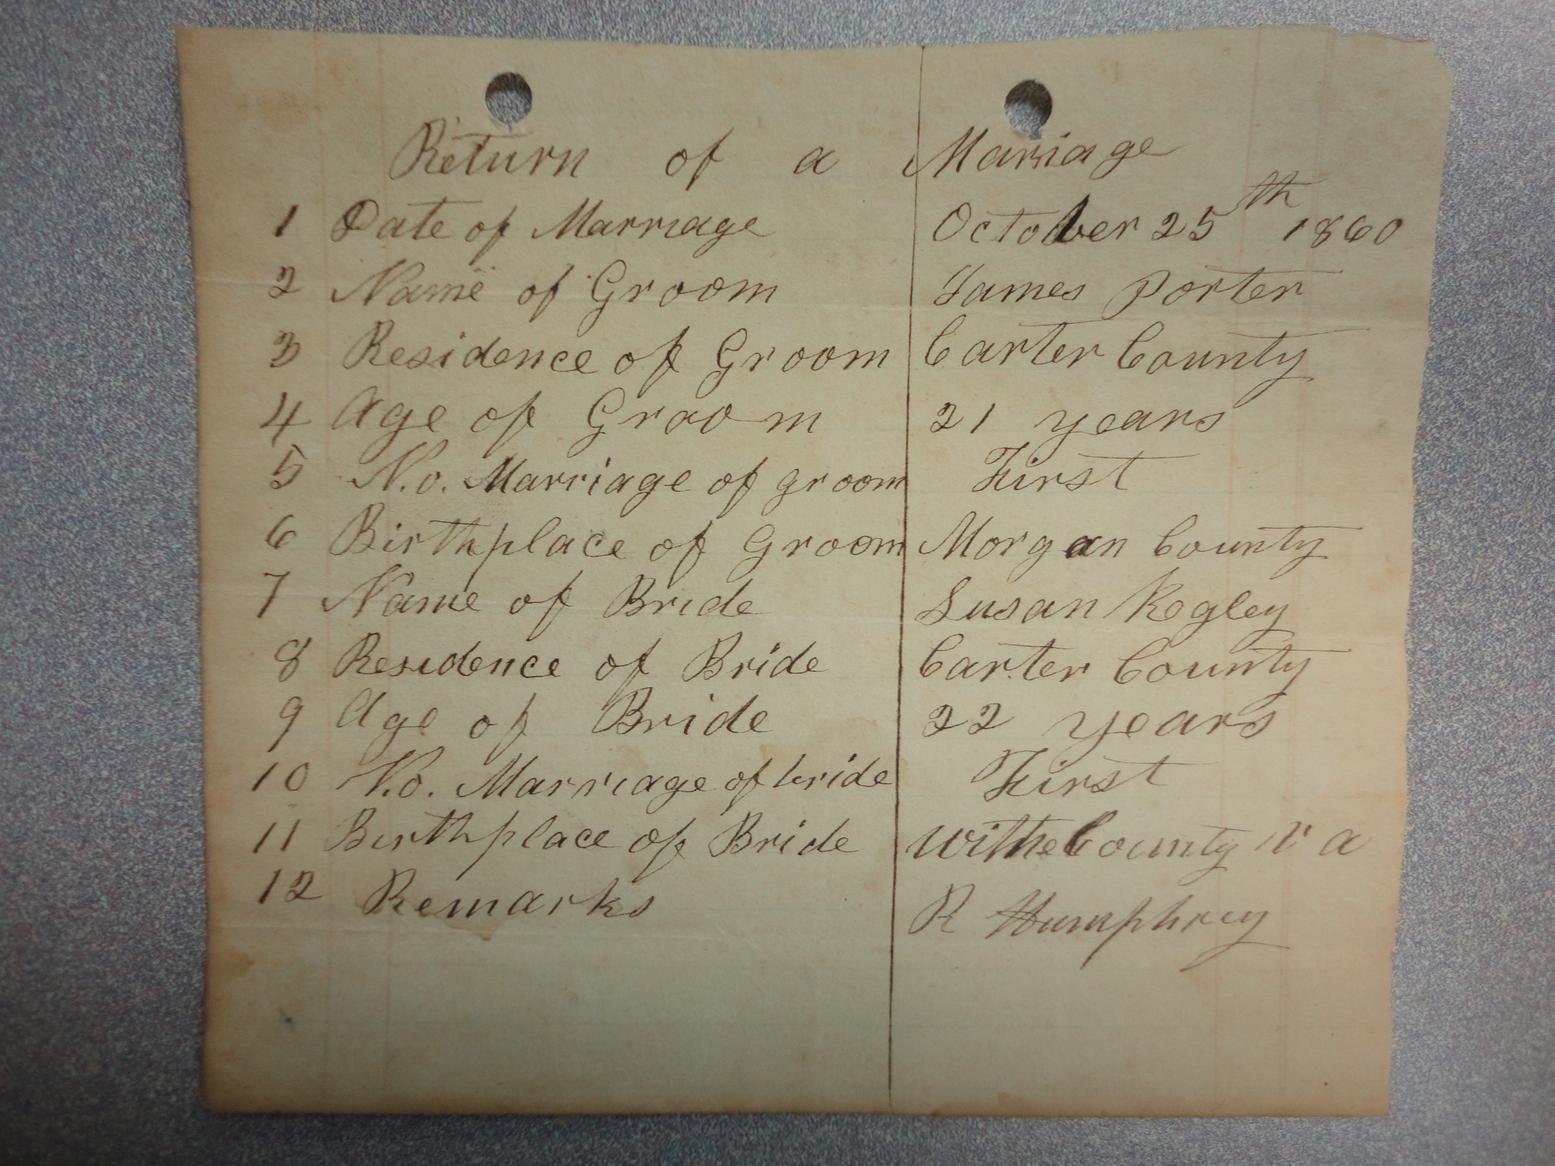 Return of a Mariage
1 Date of Marriage October 25th 1860
2 Name of Groom James Porter
3 Residence of Groom Carter County
4 Age of Groom 21 years
5 N.o. Marriage of groom First
6 Birthplace of Groom Morgan County
7 Name of Bride Susan Kegley
8 Residence of Bride Carter County
9 Age of Bride 22 years
10 N.o. Marriage of bride First
11 Birthplace of Bride Withe County Va
12 Remarks R Humphrey